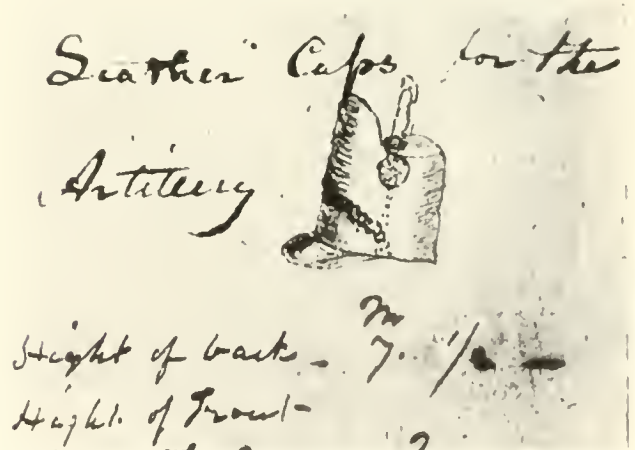 Leather Caps for the
Artillery
Hight of back - 7.
Hight of Front -